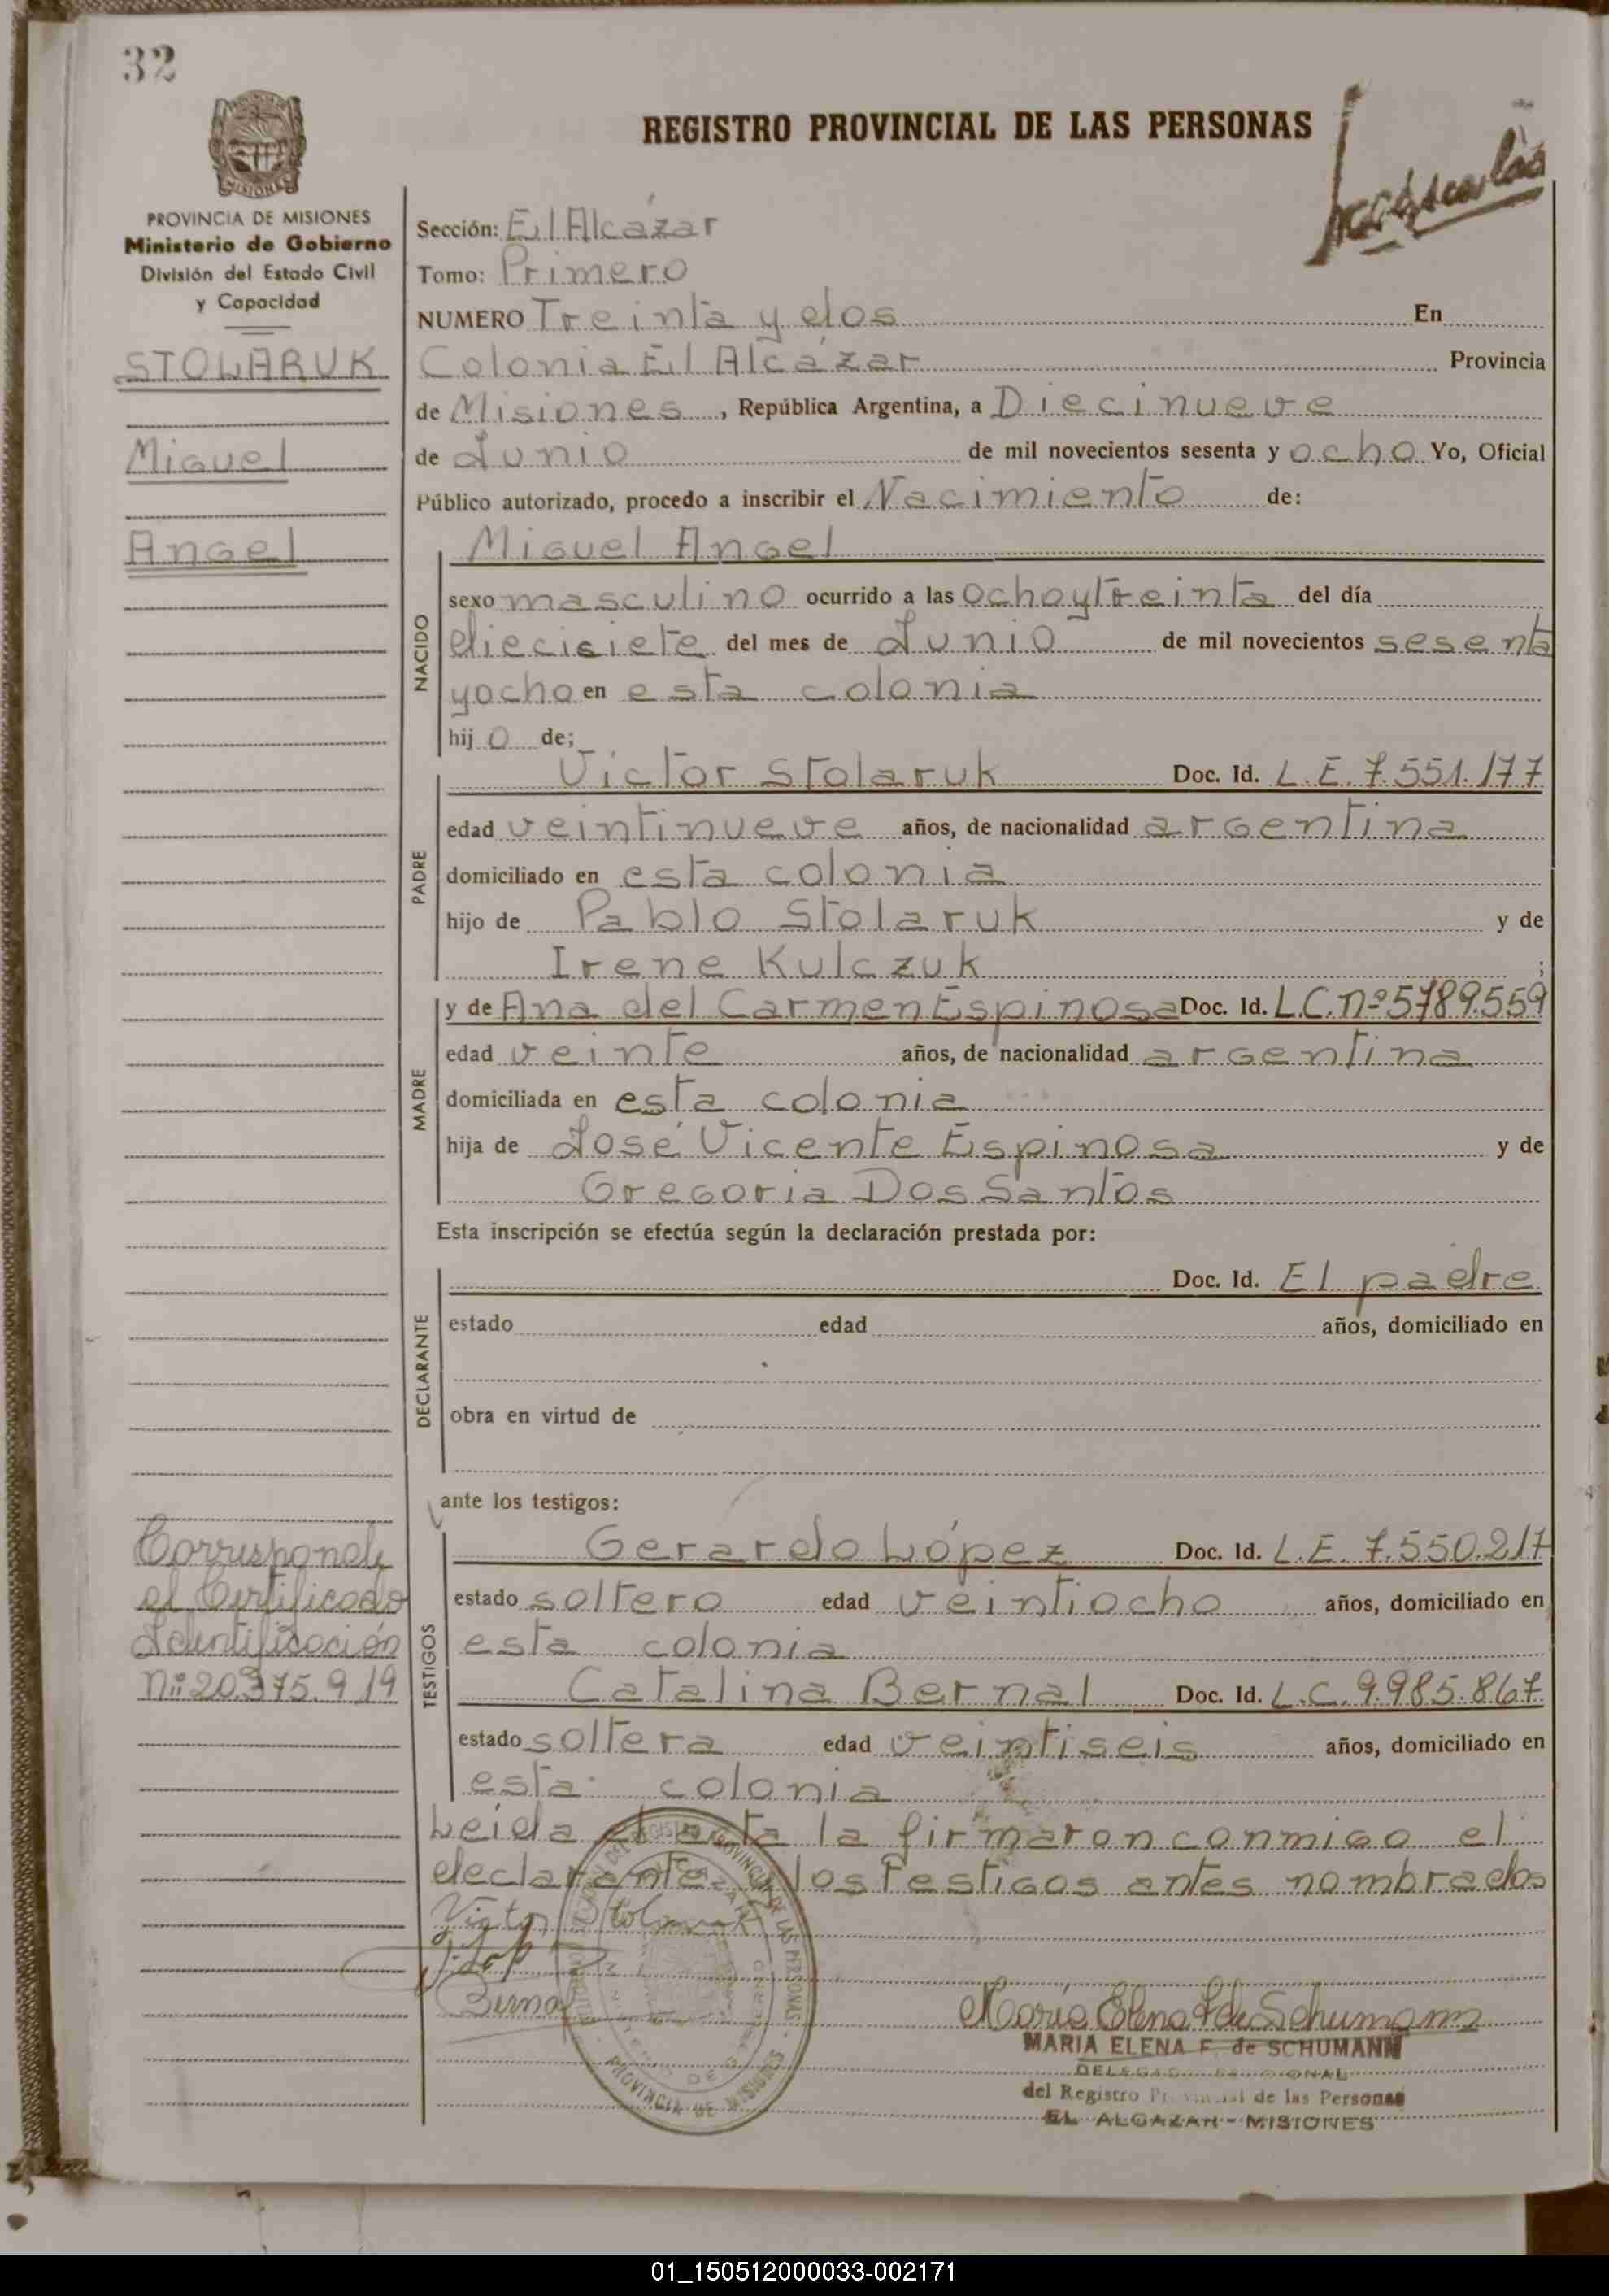 32
REGISTRO PROVINCIAL DE LAS PERSONAS
MISIONES
PROVINCIA DE MISIONES
Ministerio de Gobierno
División del Estado Civil
y Capacidad
STOLARUK
Miguel
Angel
Corresponde
el Certificado
Identificación
Nº 20.375.919
Sección: El Alcázar
Tomo: Primero
NUMERO Treinta y dos En
Colonia El Alcázar Provincia
de Misiones, República Argentina, a Diecinueve
de Junio de mil novecientos sesenta y ocho Yo, Oficial
Público autorizado, procedo a inscribir el Nacimiento de:
NACIDO
Miguel Angel
sexo masculino ocurrido a las ocho y treinta del día
diecisiete del mes de Junio de mil novecientos sesenta
y ocho en esta colonia
hijo de;
PADRE
Victor Stolaruk Doc. Id. L.E. 7.551.177
edad veintinueve años, de nacionalidad argentina
domiciliado en esta colonia
hijo de Pablo Stolaruk y de
Irene Kulczuk ;
MADRE
y de Ana del Carmen Espinosa Doc. Id. L.C. nº 5789.559
edad veinte años, de nacionalidad argentina
domiciliada en esta colonia
hija de José Vicente Espinosa y de
Gregoria Dos Santos
Esta inscripción se efectúa según la declaración prestada por:
DECLARANTE
Doc. Id. El padre
estado edad años, domiciliado en
obra en virtud de
ante los testigos:
TESTIGOS
Gerardo López Doc. Id. L.E. 7.550.217
estado soltero edad veintiocho años, domiciliado en
esta colonia
Catalina Bernal Doc. Id. L.C. 9.985.867
estado soltera edad veintiseis años, domiciliado en
esta colonia
Leida el acta la firmaron conmigo el
declarante y los testigos antes nombrados
Victor Stolaruk
Bernal
PROVINCIA DE MISIONES
María Elena F de Schumann
MARIA ELENA F. de SCHUMANN
del Registro Provincial de las Personas
EL ALCAZAR - MISIONES
01_150512000033-002171